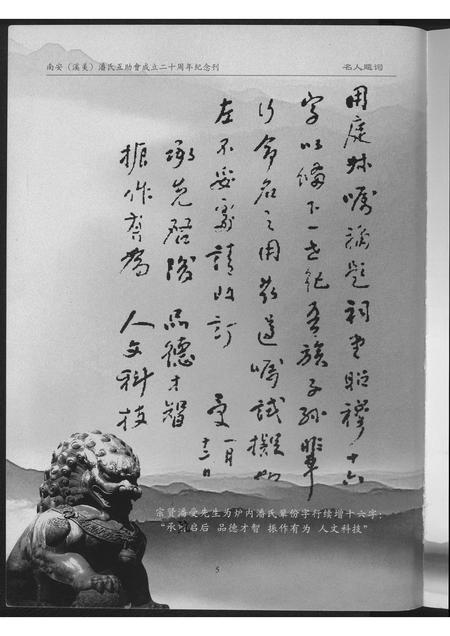 南安（溪美）潘氏互助會成立二十周年紀念刊
名人題詞
用庭叔嘱論題祠堂昭穆十六
字以備下一世紀吾族子孫輩
行命名之用敬遵嘱試撰如
左不妥處請改訂 受 一月
十二日
承先啓後 品德才智
振作有為 人文科技
宗贤潘受先生为炉内潘氏辈份字行续增十六字：
“承先启后 品德才智 振作有为 人文科技”
5